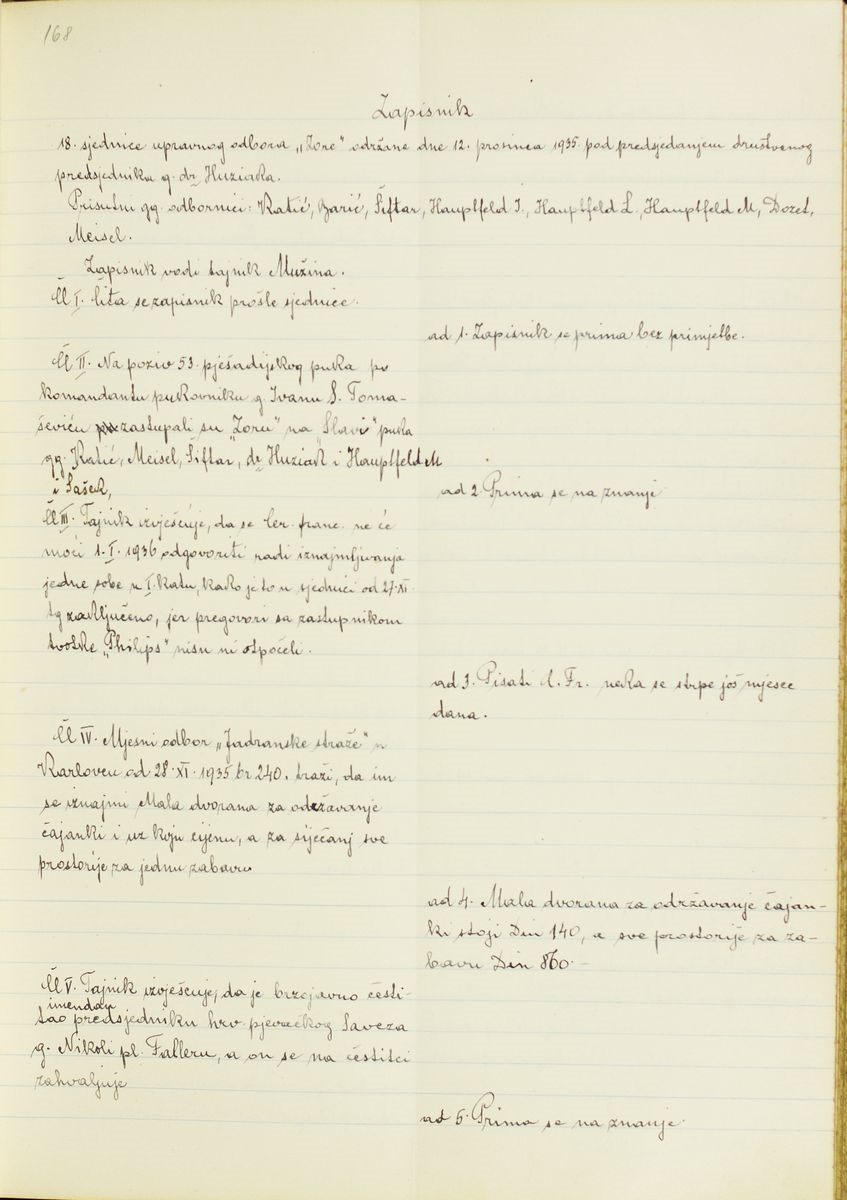 168
Zapisnik
18. sjednice upravnog odbora „Zore“ održane dne 12. prosinca 1935. pod predsjedanjem društvenog
predsjednika g. dr Huziaka.
Prisutni gg. odbornici: Katić, Barić, Šiftar, Hauptfeld I., Hauptfeld L., Hauptfeld M, Dozet,
Meisel.
Zapisnik vodi tajnik Mužina.
Čl I. Čita se zapisnik prošle sjednice.
ad 1. Zapisnik se prima bez primjetbe.
Čl II. Na poziv 53. pješadijskog puka po
komandantu pukovniku g. Ivanu S. Toma-
ševiću zastupali su „Zoru“ na „Slavi“ puka
gg. Katić, Meisel, Šiftar, dr Huziak i Hauptfeld M
i Sašek,
ad 2. Prima se na znanje
Čl III. Tajnik izvješćuje, da se Cer. franc. ne će
moći 1. I. 1936 odgovoriti radi iznajmljivanja
jedne sobe u I. katu, kako je to u sjednici od 27. XI.
tg zaključeno, jer pregovori sa zastupnikom
tvotke „Philips“ nisu ni otpočeli.
ad 3. Pisati C. Fr. neka se strpe još mjesec
dana.
Čl IV. Mjesni odbor „Jadranske straže“ u
Karlovcu od 28. XI. 1935 br 240. traži, da im
se iznajmi Mala dvorana za održavanje
čajanki i uz koju cijenu, a za siječanj sve
prostorije za jednu zabavu
ad 4. Mala dvorana za održavanje čajan-
ki stoji Din 140, a sve prostorije za za-
bavu Din 860.–
Čl V. Tajnik izvješćuje, da je brzojavno česti-
imendan
tao predsjedniku hrv. pjevačkog Saveza
g. Nikoli pl. Falleru, a on se na čestitci
zahvaljuje
ad 5. Prima se na znanje.